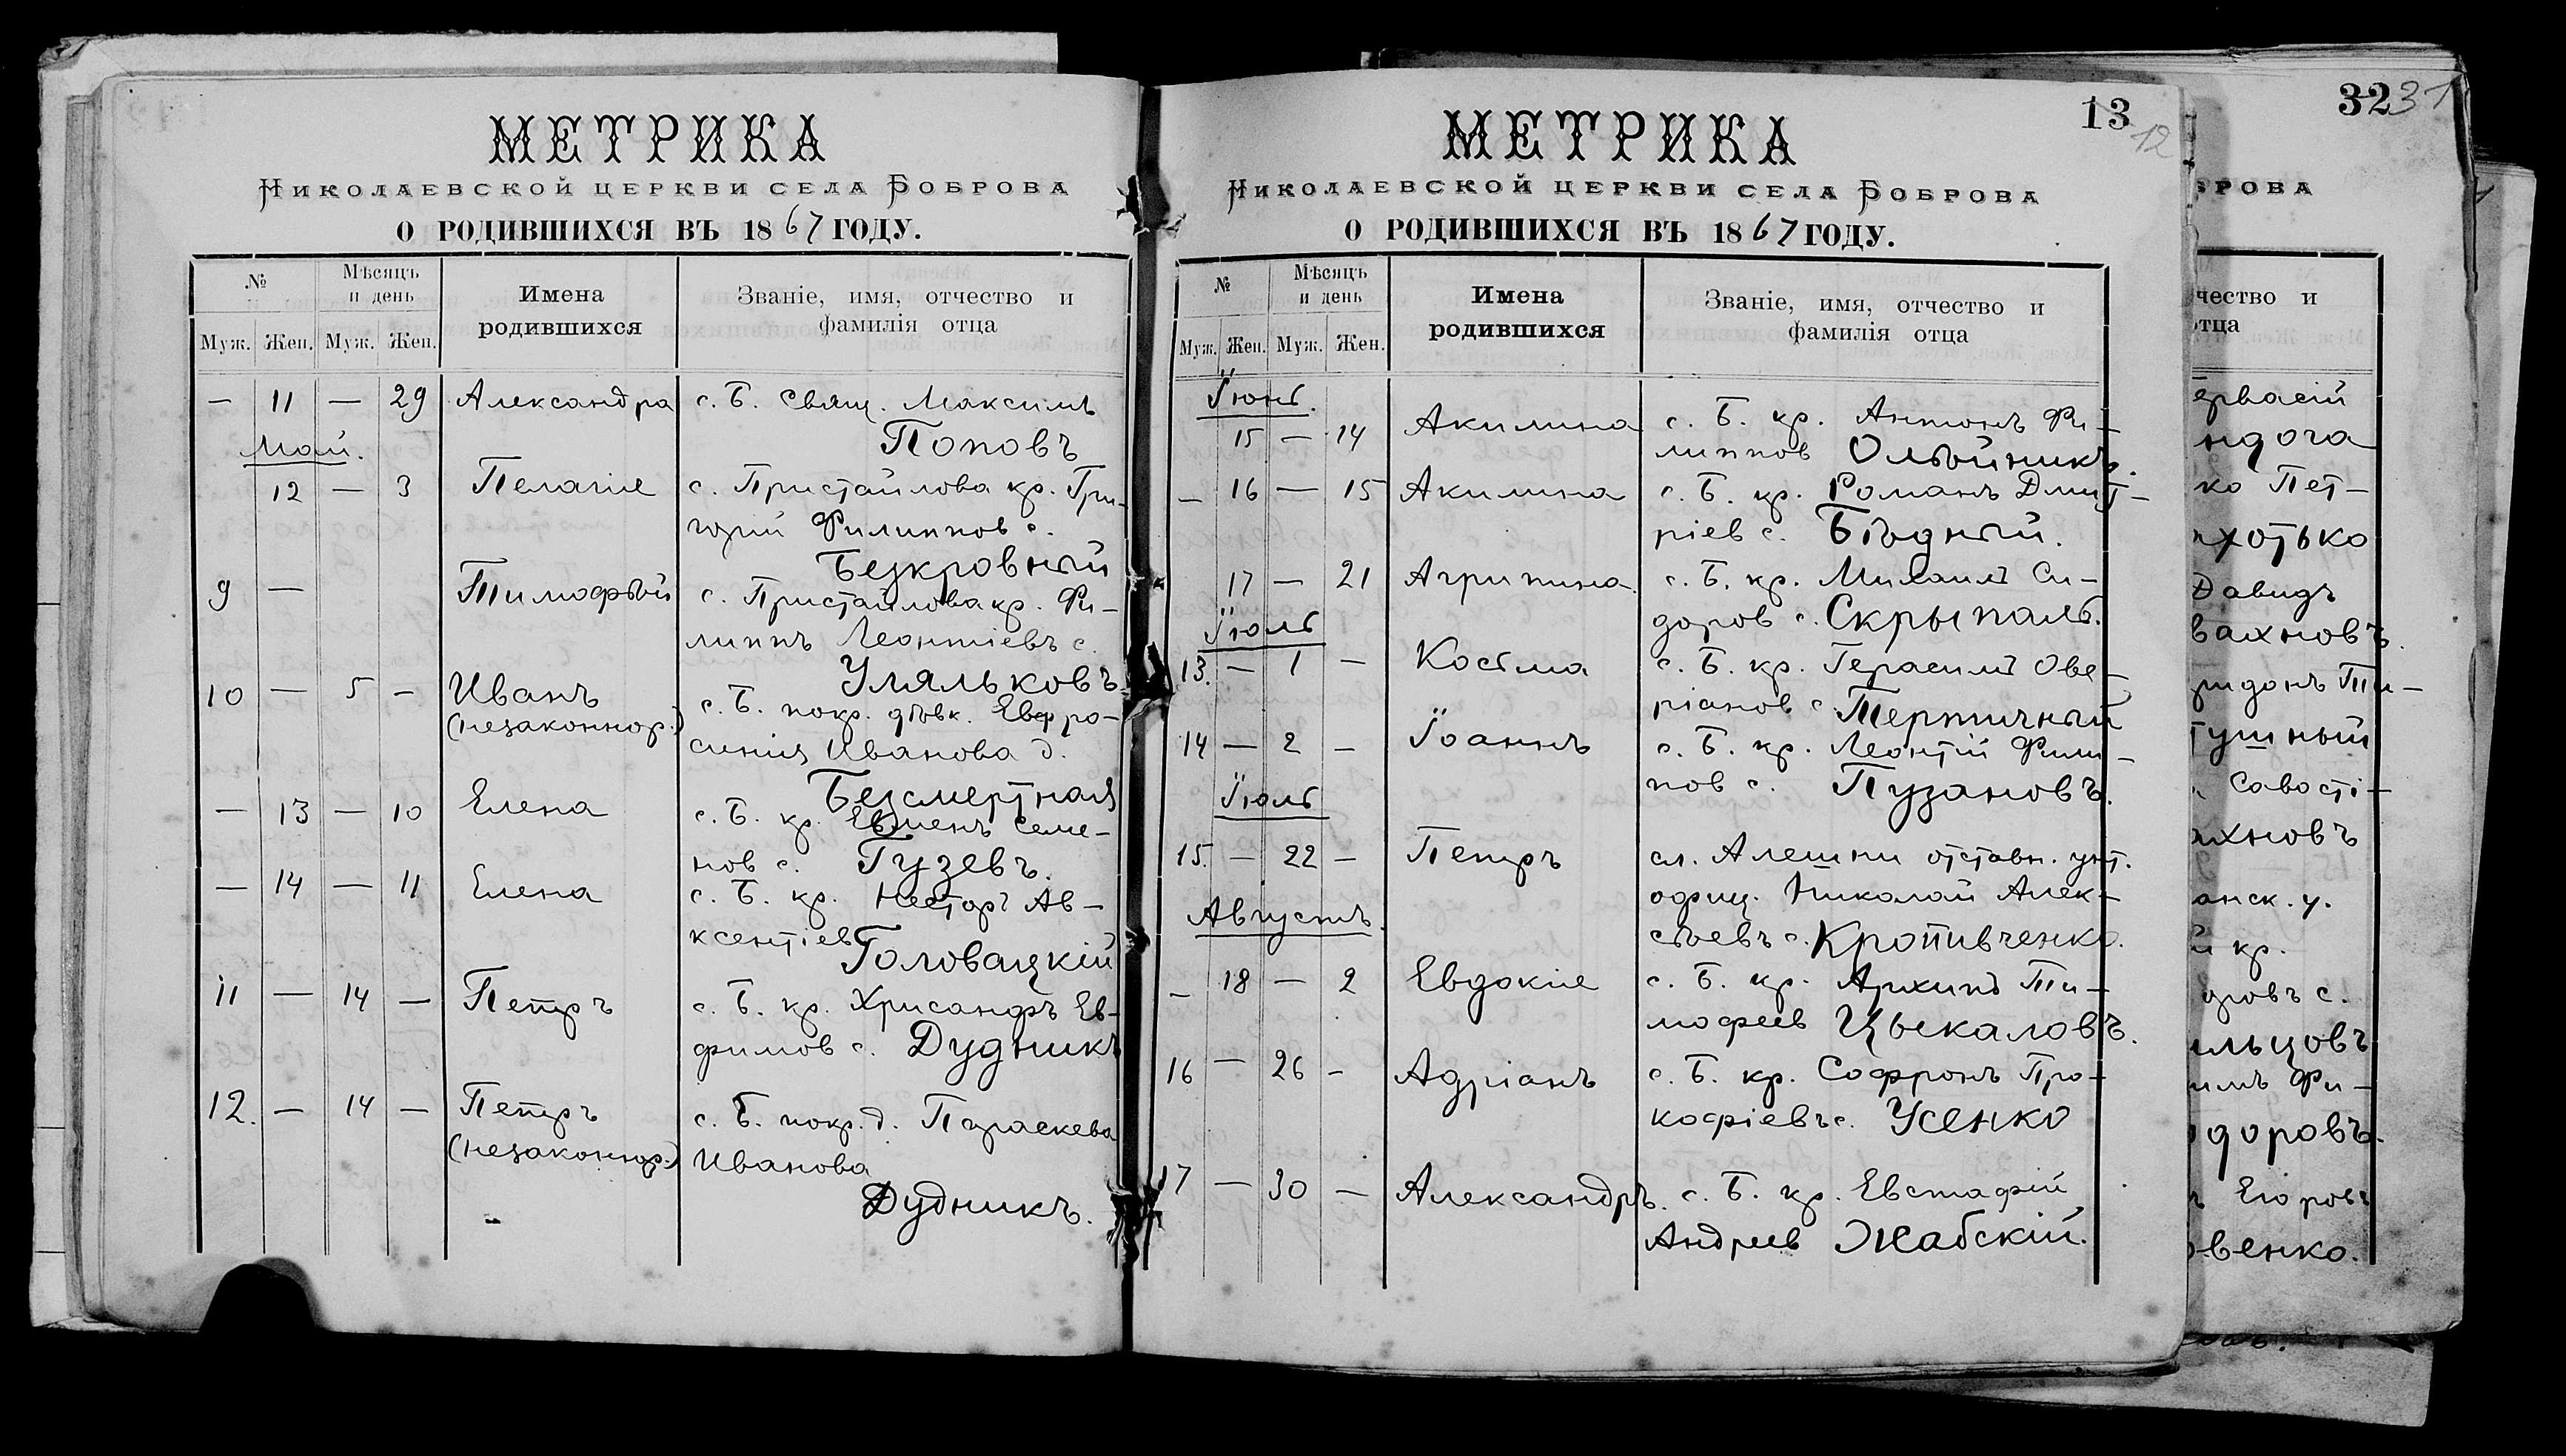 МЕТРИКА
НИКОЛАЕВСКОЙ ЦЕРКВИ СЕЛА БОБРОВА
О РОДИВШИХСЯ ВЪ 1867 ГОДУ.
№ Мѣсяцъ и день Имена родившихся Званіе, имя, отчество и фамилія отца
Муж. Жен. Муж. Жен.
— 11 — 29 Александра с. Б. Свящ. Максимъ
Поповъ
Май.
12 — 3 Пелагіе с. Пристайлова кр. Гри-
горій Филиппов с.
Безкровный
9 — Тимофѣй с. Пристайлова кр. Фи-
липпъ Леонтіевъ с.
Уляльковъ
10 — 5 — Иванъ с. Б. покр. дѣвк. Евфро-
(незаконнор.) синія Иванова д.
Безсмертная
— 13 — 10 Елена с. Б. кр. Евменъ Семе-
нов с. Гузевъ.
— 14 — 11 Елена с. Б. кр. Несторъ Ав-
ксентіев Головацкій
11 — 14 — Петръ с. Б. кр. Хрисанфъ Ев-
фимов с. Дудникъ
12. — 14 — Петръ с. Б. покр. д. Параскева
(незаконнор.) Иванова
Дудникъ.
13
12
МЕТРИКА
НИКОЛАЕВСКОЙ ЦЕРКВИ СЕЛА БОБРОВА
О РОДИВШИХСЯ ВЪ 1867 ГОДУ.
№ Мѣсяцъ и день Имена родившихся Званіе, имя, отчество и фамилія отца
Муж. Жен. Муж. Жен.
Іюнь.
15 — 14 Акилина с. Б. кр. Антонъ Фи-
липпов Олѣйникъ.
— 16 — 15 Акилина с. Б. кр. Романъ Дмит-
ріев с. Бѣдный.
17 — 21 Агрипина с. Б. кр. Михаилъ Си-
доров с. Скрыпаль.
Іюль
13. — 1 — Косьма с. Б. кр. Герасимъ Ове-
ріанов с. Терпичный
14 — 2 — Іоаннъ с. Б. кр. Леонтій Фили-
пов с. Пузановъ.
Іюль
15. — 22 — Петръ сл. Алешни отставн. унт.
офиц. Николай Алек-
сѣевъ с. Кропивченко.
Августъ.
— 18 — 2 Евдокіе с. Б. кр. Архипъ Ти-
мофеев Цыкаловъ.
16 — 26 — Адріанъ с. Б. кр. Софронъ Про-
кофіевъ с. Усенко
17 — 30 — Александръ. с. Б. кр. Евстафій
Андреев Жабскій.
32 31
БРОВА
чество и
отца
ервасій
ндога
ко Пет-
хотько
Давидъ
вахновъ.
ридонъ Ти-
тушный
Савості-
ахновъ
анск. у.
й кр.
доровъ с.
ильцовъ
имъ Фи-
одоровъ.
Егоровъ
овенко.